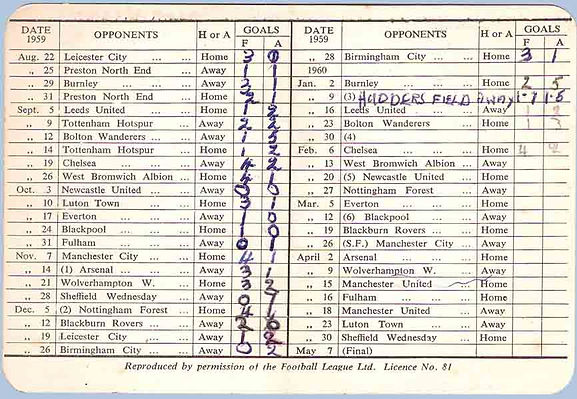 DATE 1959 OPPONENTS H or A GOALS F A
Aug. 22 Leicester City ... ... Home 3
„ 25 Preston North End Away 1 1
„ 29 Burnley ... ... Away 1
„ 31 Preston North End ... Home
Sept. 5 Leeds United ... ... Home 1 2
„ 9 Tottenham Hotspur ... Away 2 2
„ 12 Bolton Wanderers ... ... Away 1 5
„ 14 Tottenham Hotspur ... Home 1 2
„ 19 Chelsea ... ... ... Away 4 2
„ 26 West Bromwich Albion ... Home 4 1
Oct. 3 Newcastle United ... ... Away 0 0
„ 10 Luton Town ... ... Home 3 1
„ 17 Everton ... ... ... Away 1 0
„ 24 Blackpool ... ... Home 1 0
„ 31 Fulham ... ... ... Away 0 1
Nov. 7 Manchester City ... ... Home 4 1
„ 14 (1) Arsenal ... ... ... Away 3 1
„ 21 Wolverhampton W. ... Home 3 2
„ 28 Sheffield Wednesday ... Away 0 7
Dec. 5 (2) Nottingham Forest ... Home 4 1
„ 12 Blackburn Rovers ... ... Away 2 0
„ 19 Leicester City ... ... Away 1 2
„ 26 Birmingham City ... ... Away 0 2
DATE 1959 OPPONENTS H or A GOALS F A
„ 28 Birmingham City ... ... Home 3 1
1960
Jan. 2 Burnley ... ... ... Home 2 5
„ 9 (3) HUDDERSFIELD AWAY 1-7 1-5
„ 16 Leeds United ... ... Away
„ 23 Bolton Wanderers ... Home 1
„ 30 (4)
Feb. 6 Chelsea ... ... ... Home 4 4
„ 13 West Bromwich Albion ... Away
„ 20 (5) Newcastle United ... Home
„ 27 Nottingham Forest ... Away
Mar. 5 Everton ... ... ... Home
„ 12 (6) Blackpool ... ... Away
„ 19 Blackburn Rovers ... ... Home
„ 26 (S.F.) Manchester City ... Away
April 2 Arsenal ... ... ... Home
„ 9 Wolverhampton W. ... Away
„ 15 Manchester United ... Home
„ 16 Fulham ... ... ... Home
„ 18 Manchester United ... Away
„ 23 Luton Town ... ... Away
„ 30 Sheffield Wednesday ... Home
May 7 (Final)
Reproduced by permission of the Football League Ltd. Licence No. 81